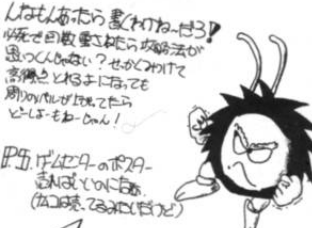 んなもんあったら書くわけねーだろ!
必死で回数重ねたら攻略法が
思いつくんじゃない?せっかくみつけて
高得点とれるよになっても
周りのレベルが上がってたら
どーしよーもねーじゃん!
P.S. ゲームセンターのポスター
売ればいいのになぁ
(ナムコは売ってるみたいだけど)